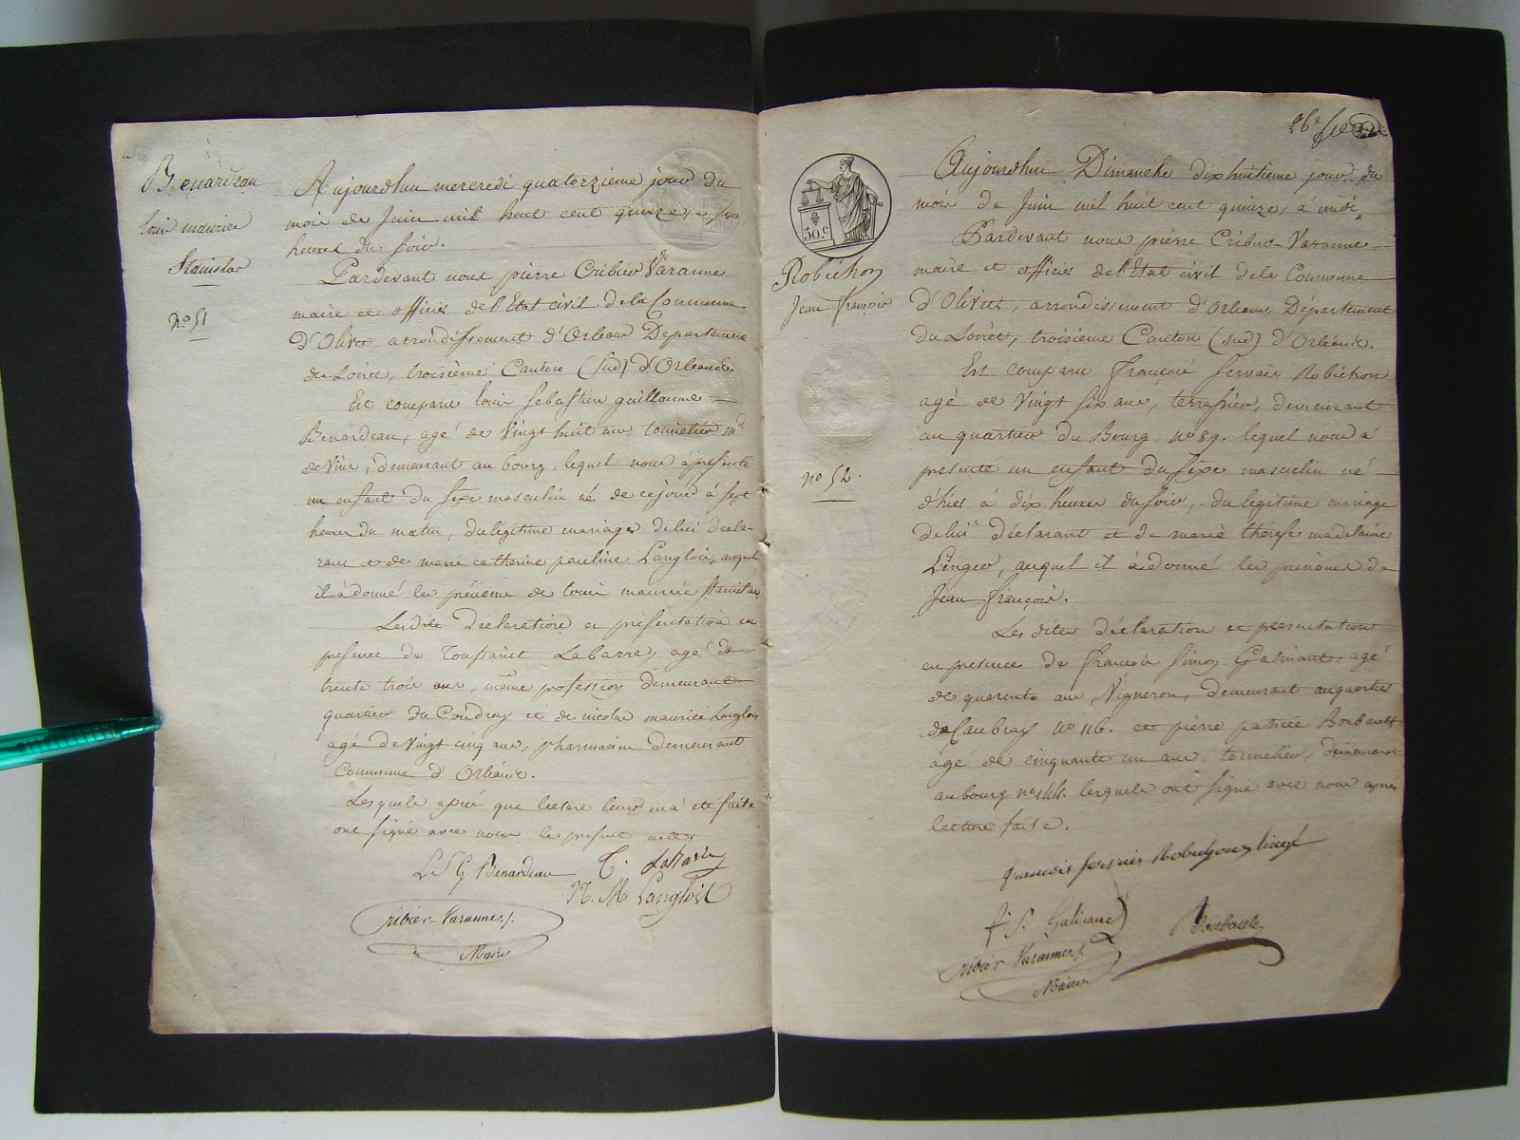 Benardeau
louis maurice
Stanislas
no 51
Aujourdhui mercredi quatorzieme jour du
mois de Juin mil huit cent quinze, a
heures du soir.
Pardevant nous pierre Cribier Varanne
maire et officier de l'Etat civil de la Commune
D'Olivet arrondissement d'Orleans Departement
du Loiret, troisième Canton (Sud) D'Orleans
Est comparu louis Sebastien guillaume
Benardeau, agé de vingt huit ans tonnelier md
de vins, demeurant au bourg, lequel nous a presenté
un enfant du sexe masculin né de cejourd à sept
heures du matin, du legitime mariage de lui decla-
rant et de marie catherine pauline Langlois, auquel
il a donné les prénoms de louis maurice Stanislas
Lesdites Declaration et présentation en
présence de Toussaint Labarre, agé de
trente trois ans, même profession demeurant
quartier du Coudray et de nicolas maurice Langlois
agé de vingt cinq ans, pharmacien demeurant
Commune d'Orléans.
Lesquels après que lecture leur en a été faite
ont signé avec nous le present acte
L S G Benardeau T. Labarre
N. M. Langlois
Cribier Varannes
Maire
26e
50.c
Robichon
Jean françois
no 52.
Aujourdhui Dimanche dix huitieme jour du
mois de Juin mil huit cent quinze, a midi
Pardevant nous pierre Cribier Varanne
maire et officier de l'Etat civil de la Commune
d'Olivet, arrondissement d'Orleans Departement
du Loiret, troisième Canton (sud) d'Orleans.
Est comparu François Servais Robichon
agé de vingt six ans, terrassier, demeurant
au quartier du Bourg no 89. lequel nous a
presenté un enfant du sexe masculin né
d'hier à dix heures du soir, du legitime mariage
de lui déclarant et de marie therese madelaine
Linger, auquel il a donné les prénoms de
Jean françois.
Les dites déclaration et presentation
en presence de françois Simon Galinant agé
de quarente ans, Vigneron, demeurant au quartier
de Caubray no 116. et pierre patrice Rombault
agé de cinquante un ans tonnelier, demeurant
au bourg no 144. lesquels ont signé avec nous après
lecture faite.
francois servais Robichon
f. S. Galinant Rombault
Cribier Varannes
Maire